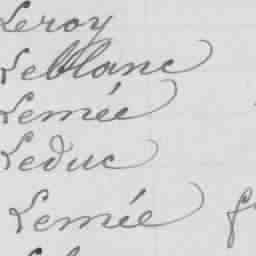 Leroy
Leblanc
Lemée
Leduc
Lemée